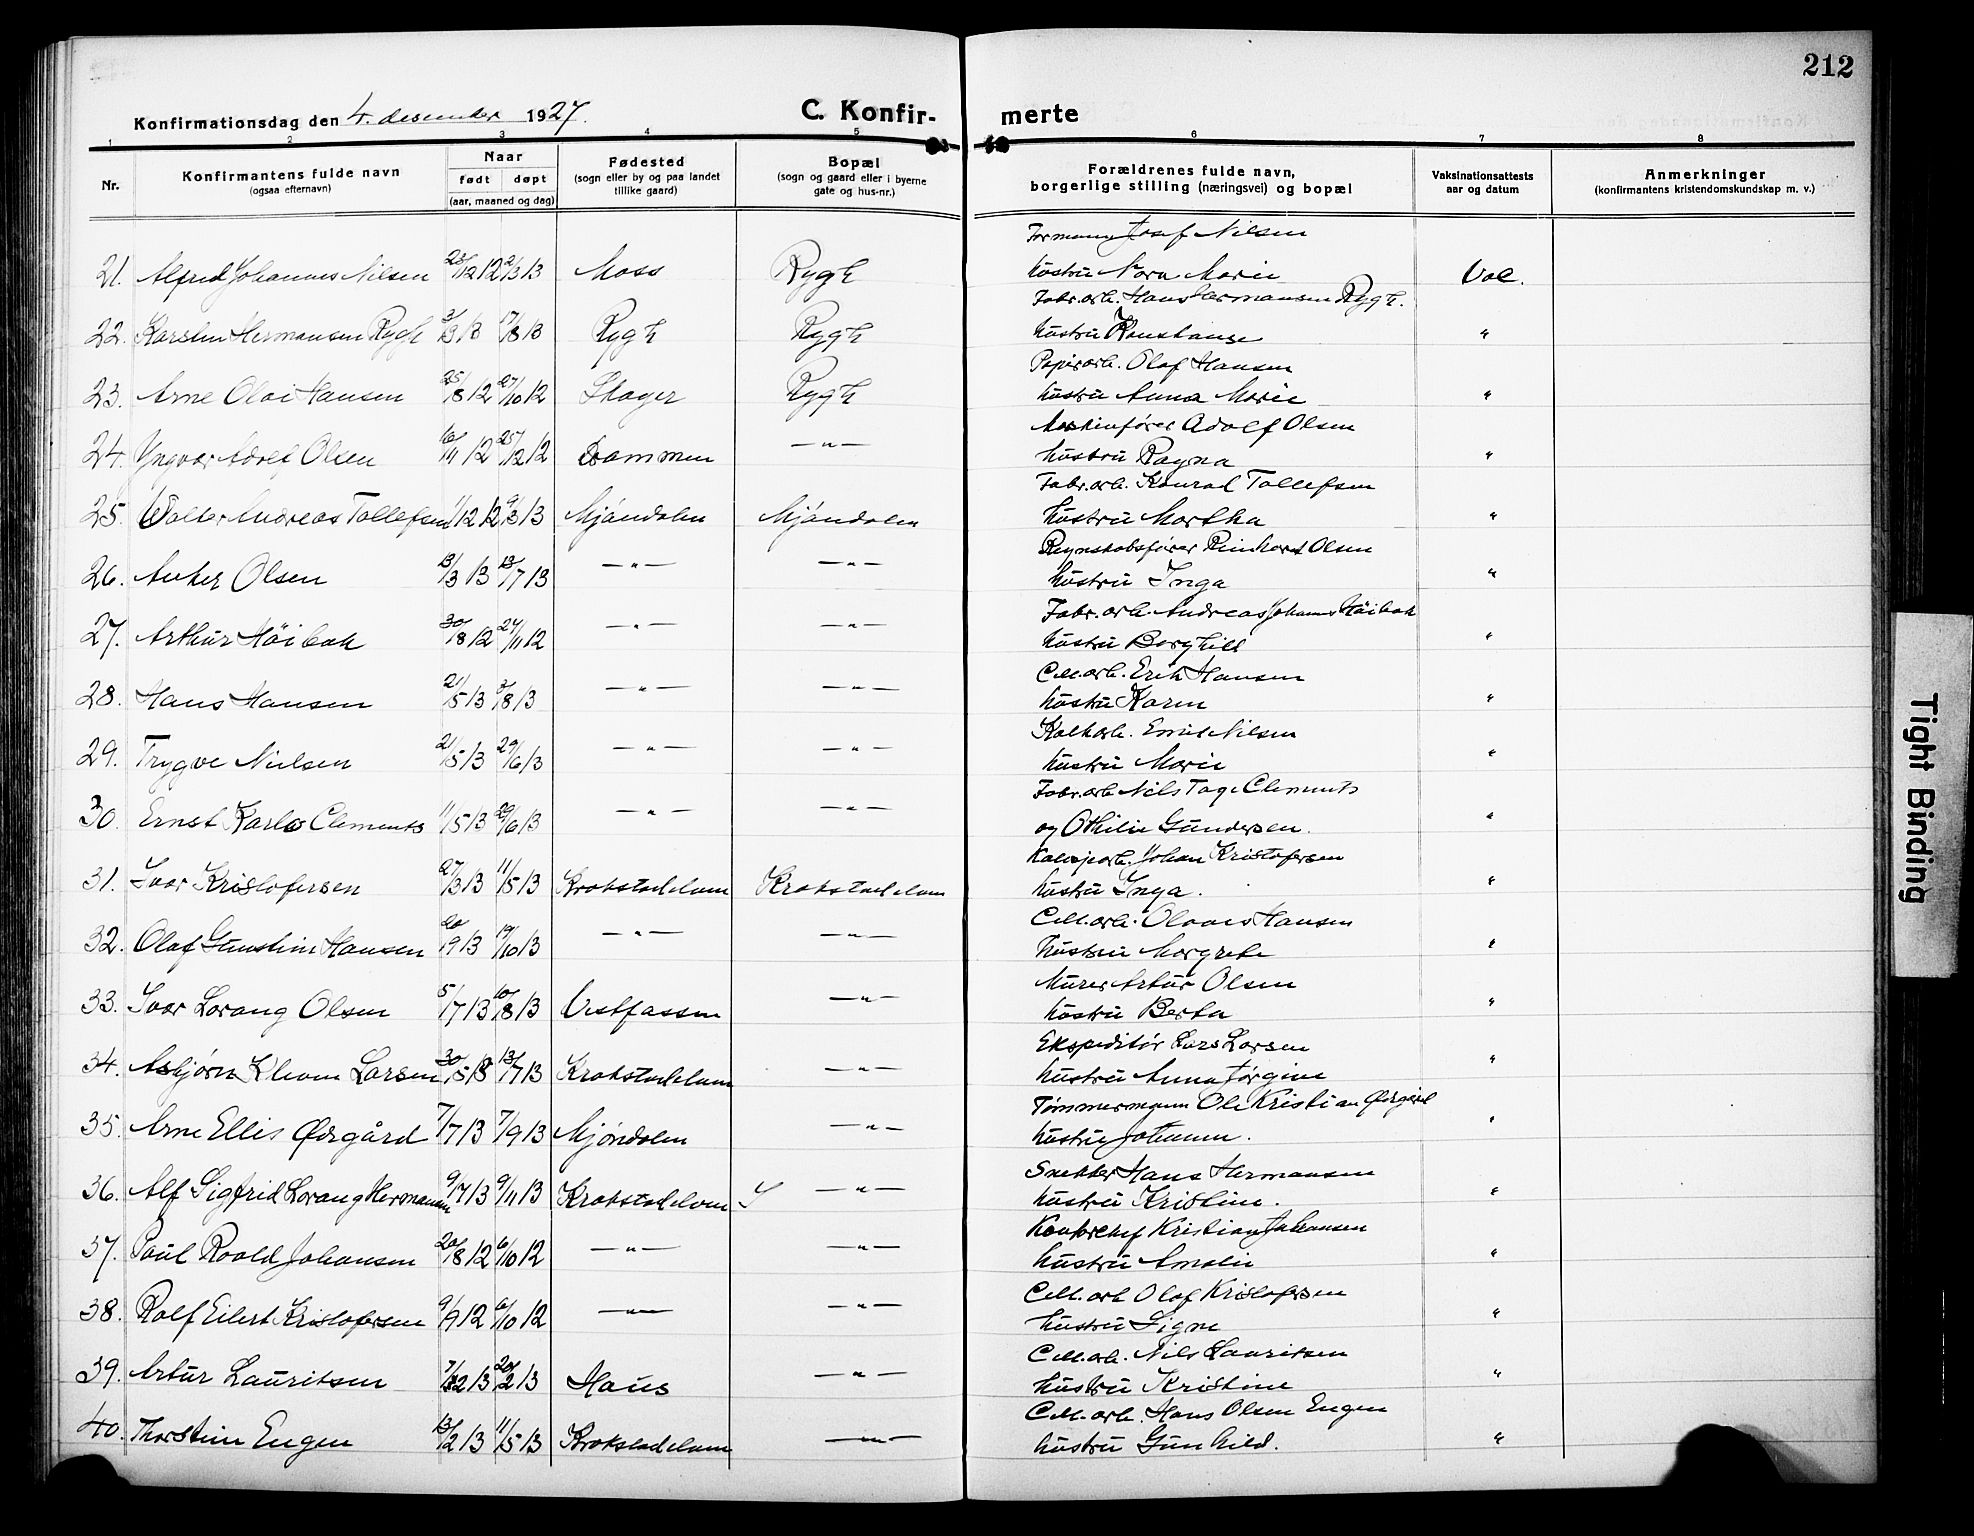 212
Konfirmationsdag den 4. desember 1927.
C. Konfir-
merte
1 2 3 4 5 6 7 8
Nr.
Konfirmantens fulde navn
(ogsaa efternavn)
Naar
født døpt
(aar, maaned og dag)
Fødested
(sogn eller by og paa landet
tillike gaard)
Bopæl
(sogn og gaard eller i byerne
gate og hus-nr.)
Forældrenes fulde navn,
borgerlige stilling (næringsvei) og bopæl
Vaksinationsattests
aar og datum
Anmerkninger
(konfirmantens kristendomskundskap m. v.)
Formann Josef Nilsen
21. Alfred Johannes Nilsen 23/12 12 2/3 13 Moss Rygh hustru Nora Marie Vac.
Fabr.arb. Hans Hermansen Rygh.
22. Karsten Hermansen Rygh 3/3 13 17/8 13 Rygh Rygh hustru Konstanse "
Papirarb. Olaf Hansen
23. Arne Olai Hansen 25/8 12 27/10 12 Skoger Rygh hustru Anna Marie "
Maskinfører Adolf Olsen
24. Yngvar Adolf Olsen 16/11 12 25/12 12 Drammen — " — hustru Ragna "
Fabr.arb. Konrad Tollefsen
25. Walter Andreas Tollefsen 1/12 12 9/3 13 Mjøndalen Mjøndalen hustru Martha "
Regnskabsfører Reinhard Olsen
26. Anker Olsen 13/3 13 13/7 13 — " — — " — hustru Inga "
Fabr.arb. Andreas Johans Höibak
27. Arthur Höibak 30/8 12 24/11 12 — " — — " — hustru Borghild "
Cell.arb. Erik Hansen
28. Hans Hansen 21/5 13 3/8 13 — " — — " — hustru Karen "
Kalkarb. Emil Nilsen
29. Trygve Nielsen 21/5 13 29/6 13 — " — — " — hustru Marie "
Fabr.arb Nils Tage Clements
30. Ernst Karlo Clements 11/5 13 29/6 13 — " — — " — og Othilie Gundersen. "
Johan Kristofersen
31. Ivar Kristofersen 27/3 13 11/5 13 Krokstadelven Krokstadelven hustru Inga. "
Cell.arb. Olaves Hansen
32. Olaf Gunstein Hansen 20/9 13 19/10 13 — " — — " — hustru Margrete "
Murer Artur Olsen
33. Ivar Lorang Olsen 5/7 13 10/8 13 Vestfossen — " — hustru Berta "
Ekspeditør Lars Larsen
34. Asbjørn Kleven Larsen 30/5 13 13/7 13 Krokstadelven — " — hustru Anna Jørgine "
Tømmermann Ole Kristian Ødegård
35. Arne Ellis Ødegård 7/7 13 7/9 13 Mjøndalen — " — hustru Johanne. "
Snekker Hans Hermansen
36. Alf Sigfrid Lorang Hermansen 9/7 13 9/11 13 Krokstadelven — " — hustru Kristine. "
Kontorchef Kristian Johansen
37. Paul Roald Johansen 20/8 12 6/10 12 — " — — " — hustru Amalie "
Cell.arb Olaf Kristofersen
38. Rolf Eilert Kristofersen 9/9 12 6/10 12 — " — — " — hustru Signe "
Cell.arb. Nils Lauritsen
39. Artur Lauritsen 7/12 13 20/2 13 Haus — " — hustru Kristine "
Cell.arb. Hans Olsen Engen
40. Thorstein Engen 13/2 13 11/5 13 Krokstadelven — " — hustru Gunhild. "
Tight Binding